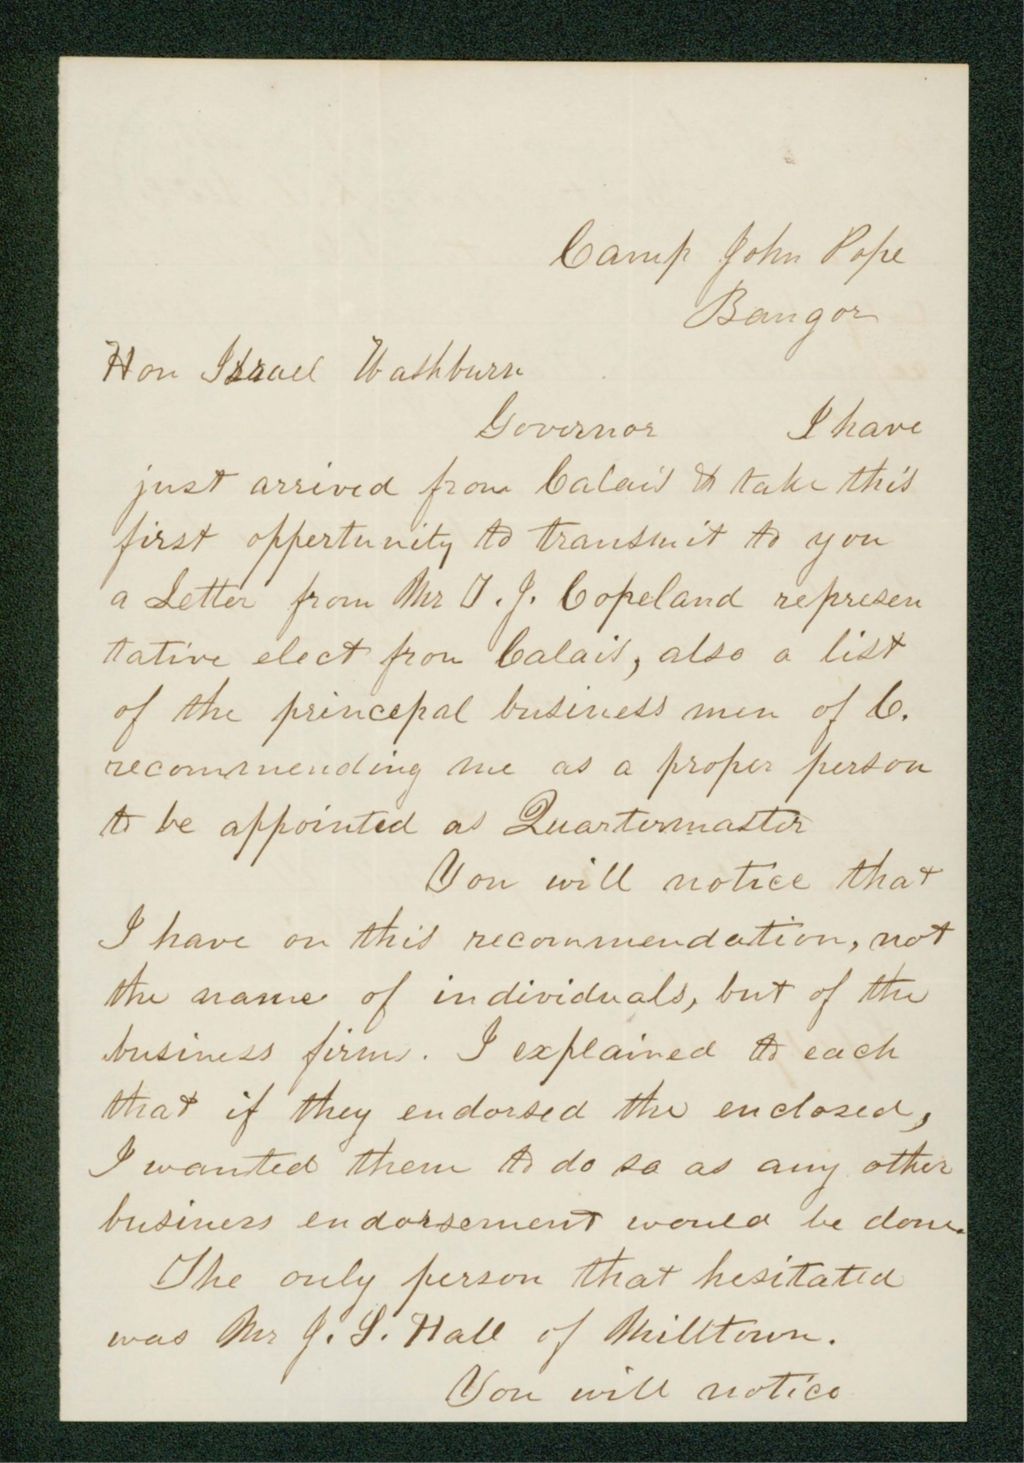 Camp John Pope
Bangor
Hon Israel Washburn
Governor I have
just arrived from Calais & take this
first oppertunity to transmit to you
a Letter from Mr T. J. Copeland represen
tative elect from Calais, also a list
of the princepal business men of C.
recommending me as a proper person
to be appointed as Quartermaster
You will notice that
I have on this recommendation, not
the name of individuals, but of the
business firms. I explained to each
that if they endorsed the enclosed,
I wanted them to do so as any other
business endorsement would be done.
The only person that hesitated
was Mr J. S. Hall of Milltown.
You will notice